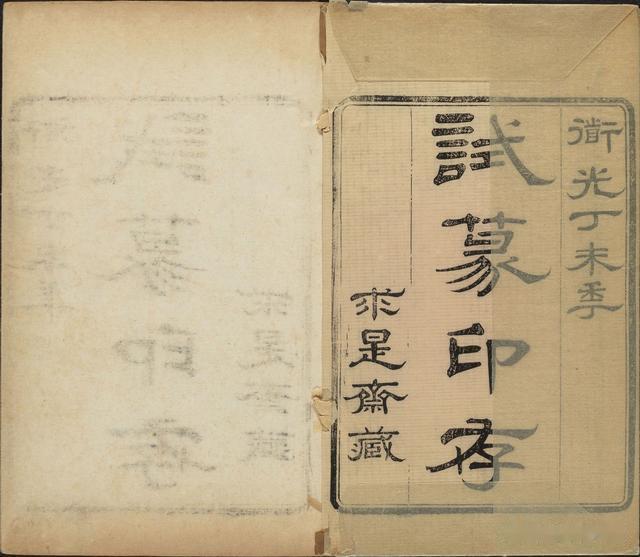 衜光丁未季
試篆印存
求是齋藏